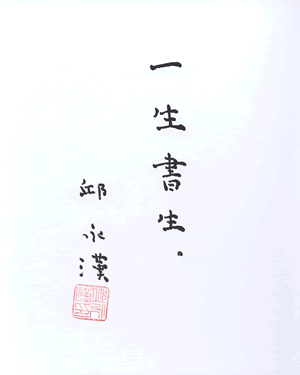 一生書生。
邱永漢